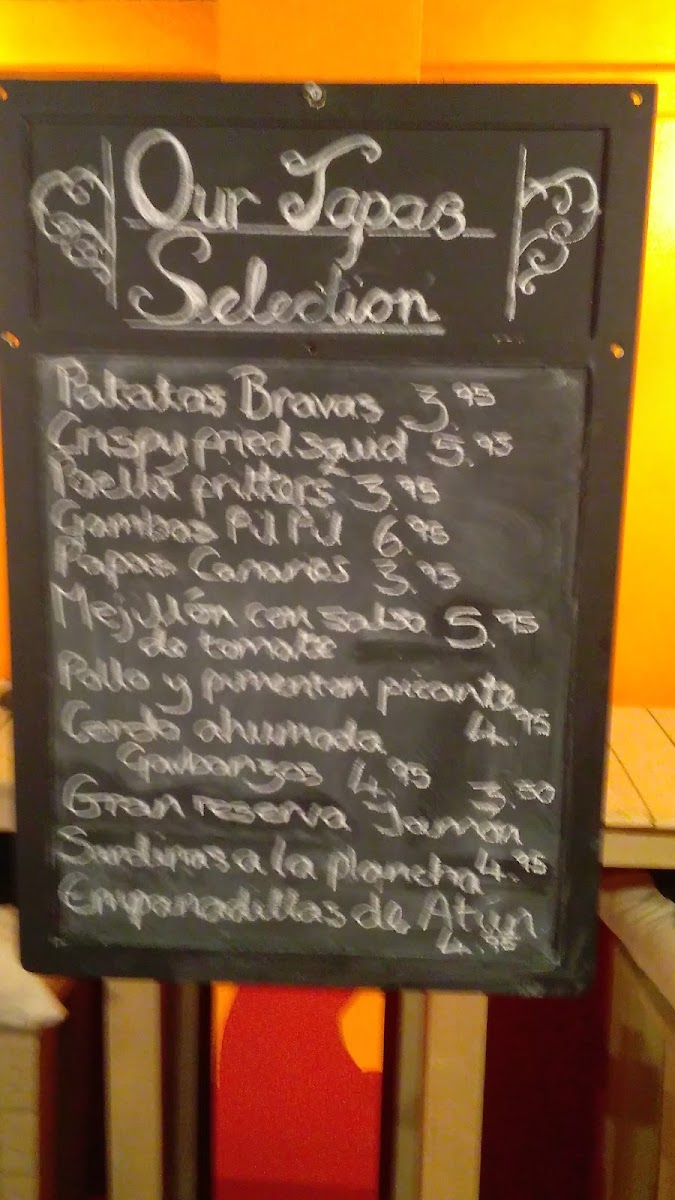 Our Tapas
Selection
Patatas Bravas 3.95
Crispy fried squid 5.95
Paella fritters 3.95
Gambas Pil Pil 6.95
Papas Canarias 3.95
Mejillón con salsa 5.95
de tomate
Pollo y pimenton picante
Cerdo ahumada 4.95
Garbanzos 4.95 3.50
Gran reserva Jamón
Sardinas a la plancha 4.95
Empanadillas de Atún
4.95